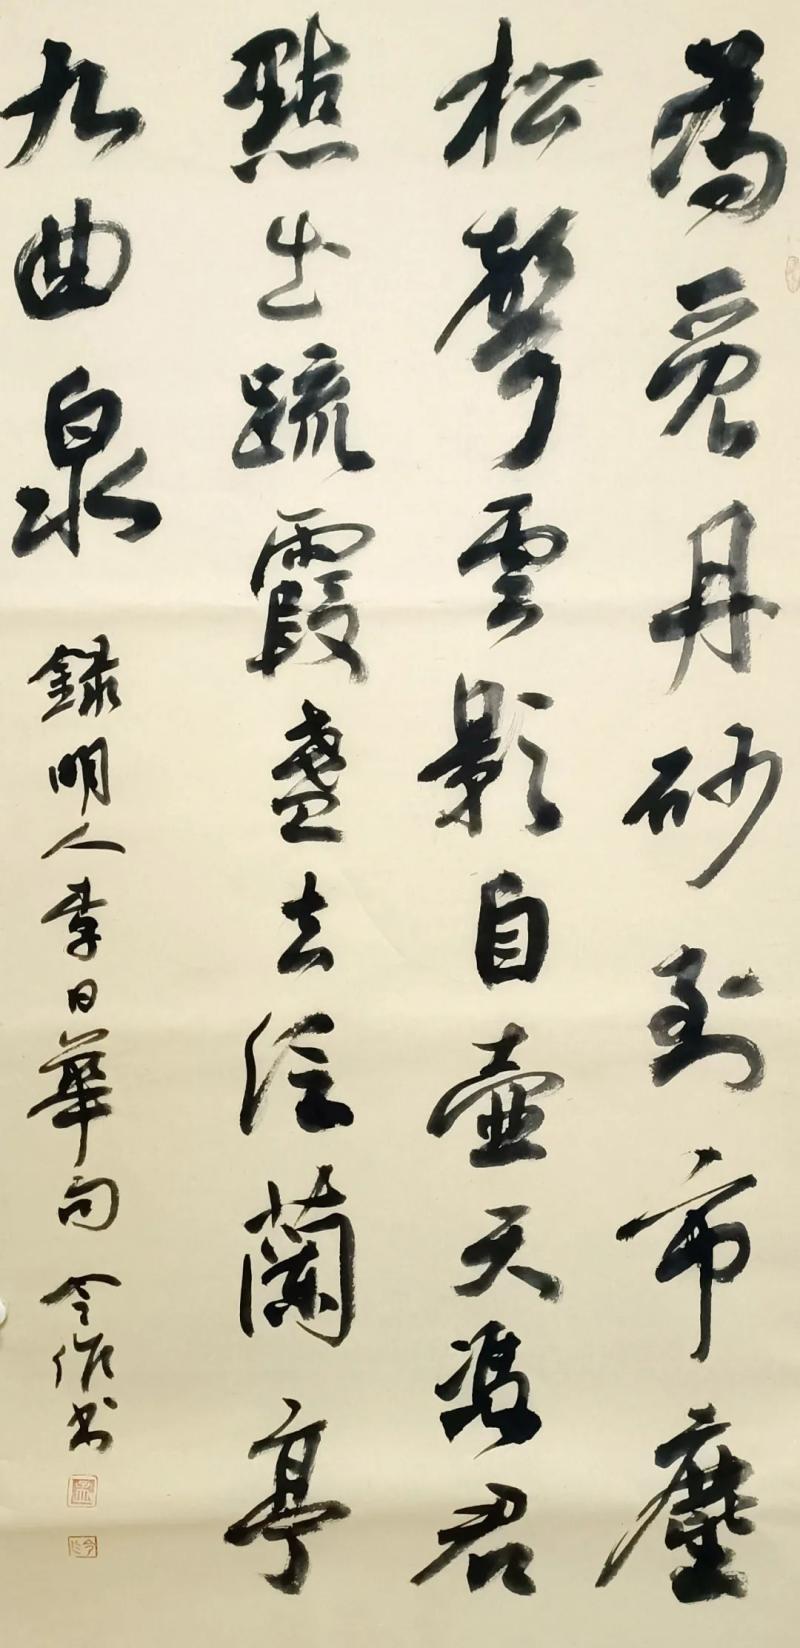 為覓丹砂到市廛
松聲雲影自壺天憑君
點出䟽霞盞去泛蘭亭
九曲泉
錄明人李日華句 令作書